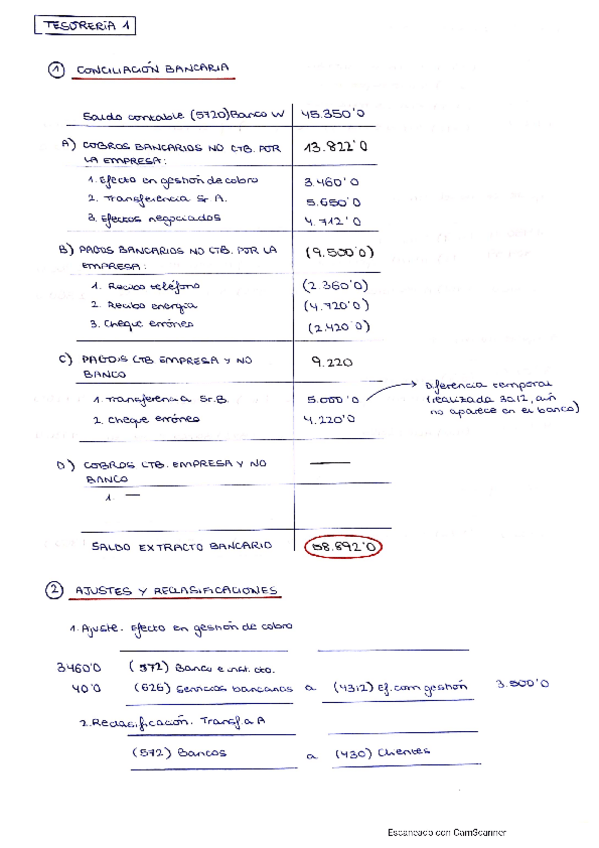 TESORERIA 1
1 CONCILIACIÓN BANCARIA
Saldo contable (5720) Banco W 45.350'0
A) COBROS BANCARIOS NO CTB. POR 13.822'0
LA EMPRESA:
1. Efecto en gestión de cobro 3.460'0
2. Transferencia Sr A. 5.650'0
3. Efectos negociados 4.712'0
B) PAGOS BANCARIOS NO CTB. POR LA (9.500'0)
EMPRESA:
1. Recibo teléfono (2.360'0)
2. Recibo energía (4.720'0)
3. Cheque erróneo (2.420'0)
C) PAGOS CTB EMPRESA Y NO 9.220
BANCO
1. Transferencia Sr. B. 5.000'0
2. Cheque erróneo 4.220'0
Diferencia temporal
(realizada 30.12, aún
no aparece en el banco)
D) COBROS CTB. EMPRESA Y NO —
BANCO
1. —
SALDO EXTRACTO BANCARIO 58.892'0
2 AJUSTES Y RECLASIFICACIONES
1. Ajuste. Efecto en gestión de cobro
3460'0 (572) Banco e inst. cto.
40'0 (626) Servicios bancarios a (4312) Ef. com gestión 3.500'0
2. Reclasificación. Transf a A
(572) Bancos a (430) Clientes
Escaneado con CamScanner